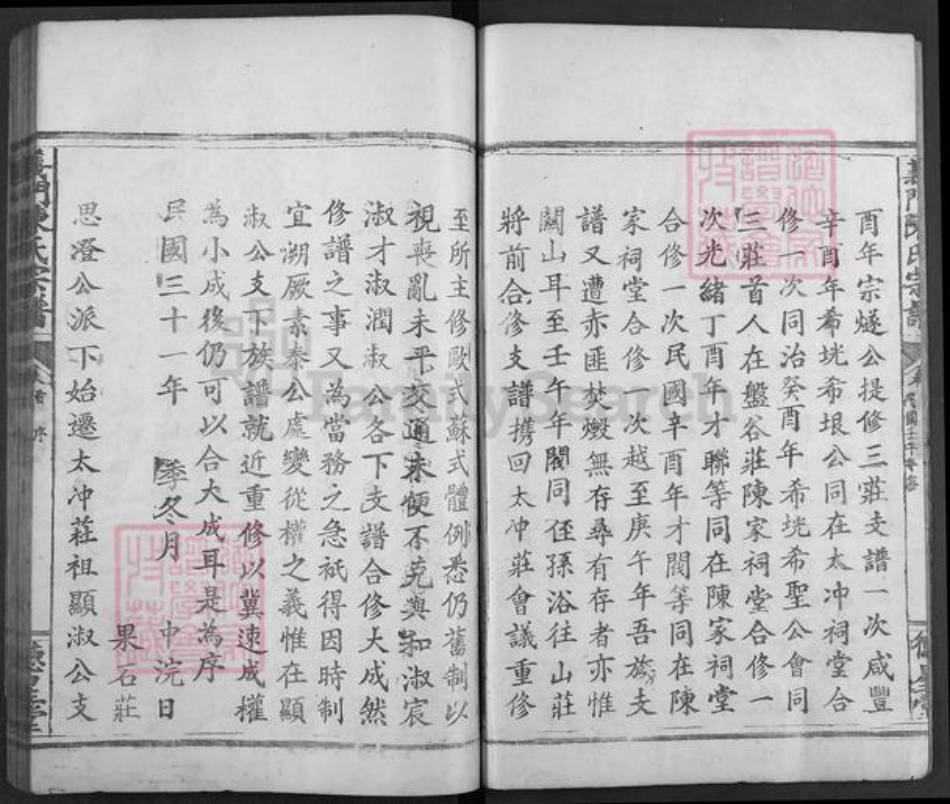 酉年宗燧公提修三莊支譜一次咸豐
辛酉年希垙希垠公同在太冲祠堂合
修一次同治癸酉年希垙希聖公會同
三莊首人在盤谷莊陳家祠堂合修一
次光緒丁酉年才聯等同在陳家祠堂
合修一次民國辛酉年才閱等同在陳
家祠堂合修一次越至庚午年吾族支
譜又遭赤匪焚燬無存尋有存者亦惟
關山耳至壬午年閣同侄孫浴往山莊
將前合修支譜携回太冲莊會議重修
至所主修歐式蘇式體例悉仍舊制以
視喪亂未平交通未便不克與和淑宸
淑才淑潤淑公各下支譜合修大成然
修譜之事又為當務之急祇得因時制
宜溯厥素泰公處變從權之義惟在顯
淑公支下族譜就近重修以冀速成權
為小成後仍可以合大成耳是為序
民國三十一年 季冬月 中浣日
果石莊
思澄公派下始遷太冲莊祖顯淑公支
義門陳氏宗譜
卷首
序
FamilySearch